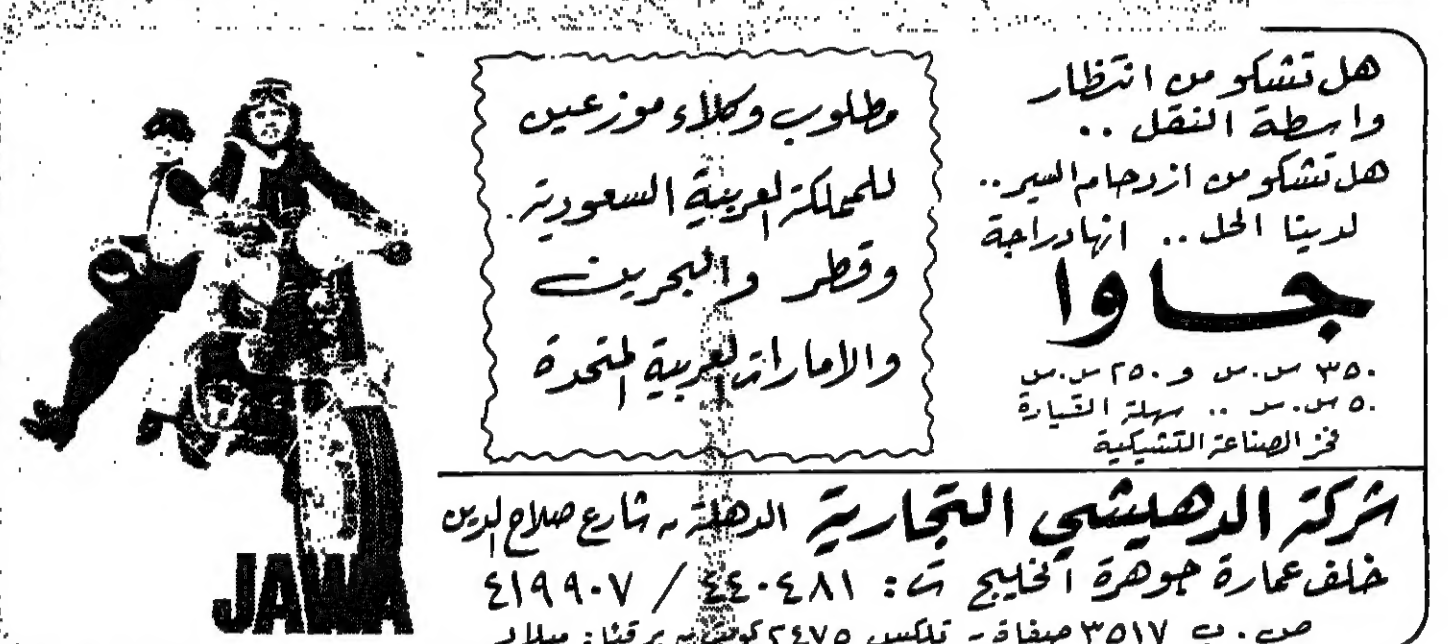 هل تشكو من انتظار
واسطة النقل ..
هل تشكو من ازدحام السير ..
لدينا الحل .. انها دراجة
جاوا
٣٥٠ س.س و ٢٥٠ س.س
٥٠ س.س .. سهلة القيادة
فخر الصناعة التشيكية
مطلوب وكلاء موزعين
للمملكة العربية السعودية .
وقطر والبحرين
والامارات العربية المتحدة
JAWA
شركة الدهيشي التجارية الدهلة - شارع صلاح الدين
خلف عمارة جوهرة الخليج ت : ٤٤٠٤٨١ / ٤١٩٩٠٧
ص . ب ٣٥١٧ صفاة - تلكس ٢٤٧٥ كويت - برقيا : ميلاد